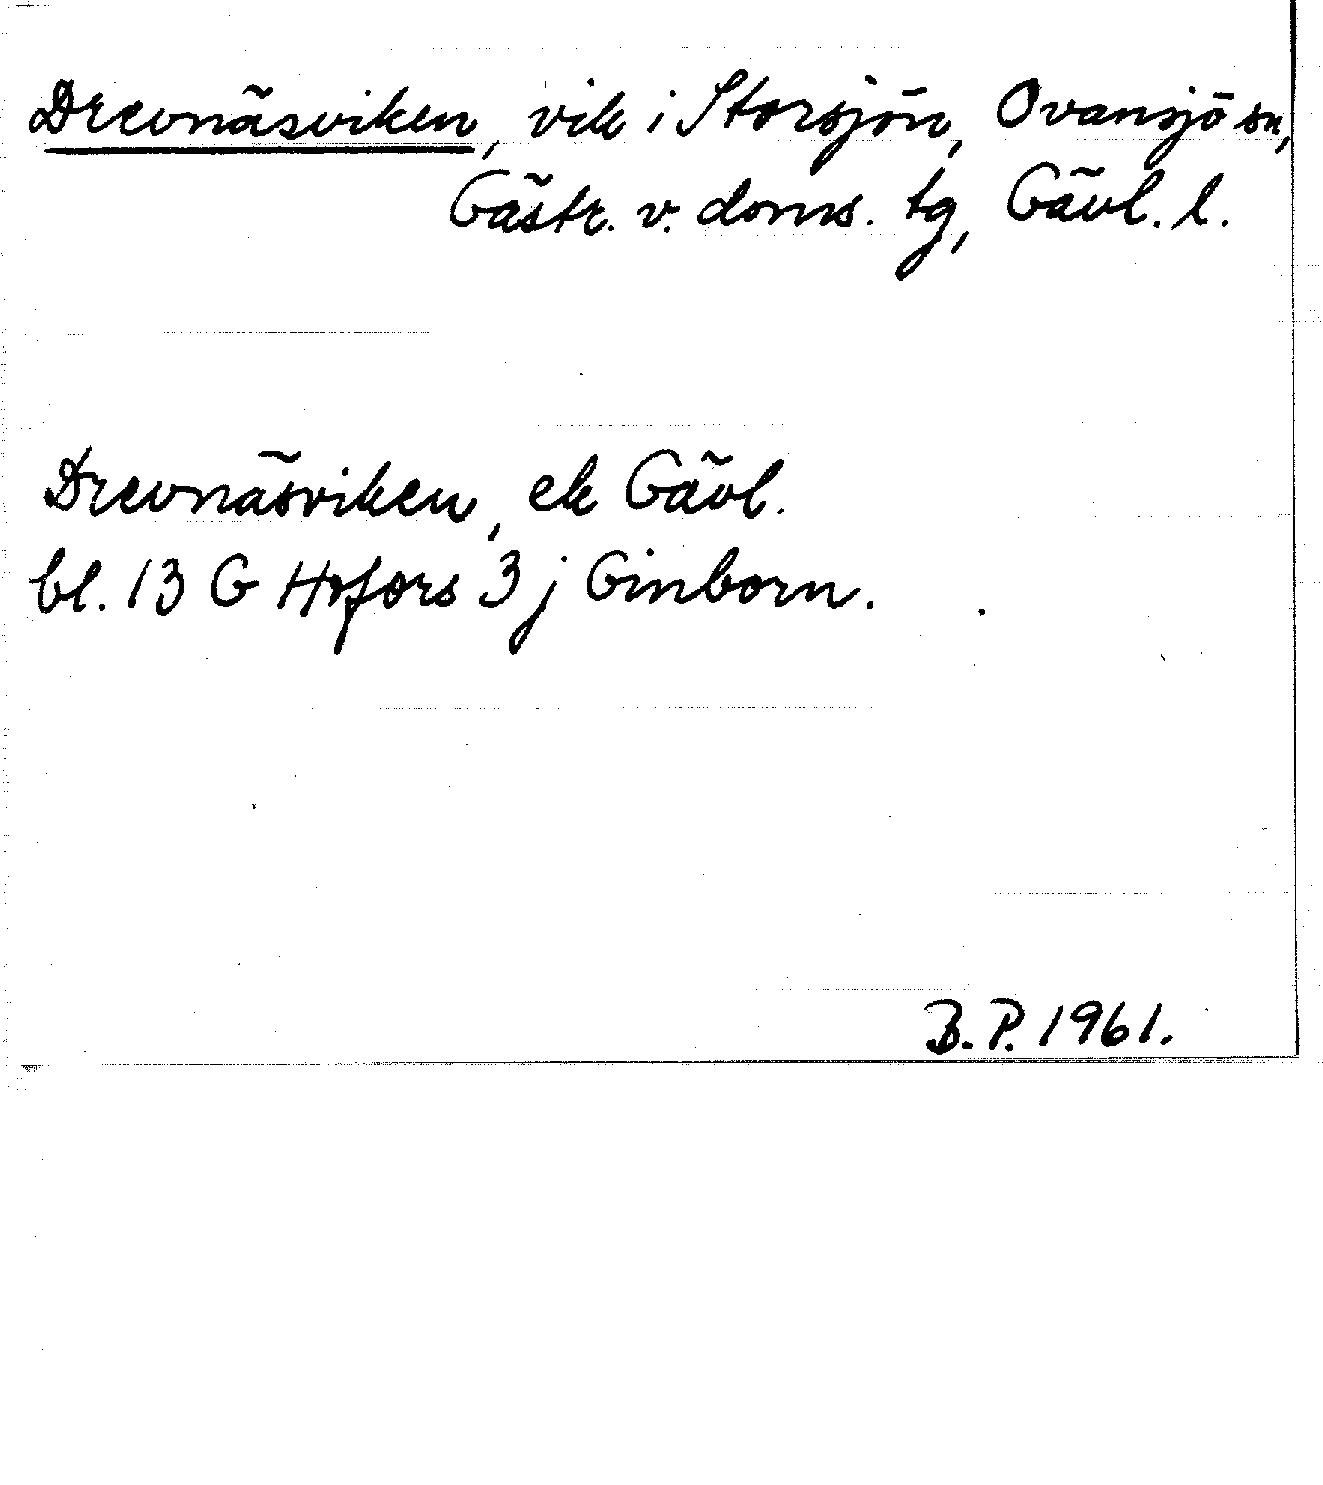 Drevnäsviken, vik i Storsjön, Ovansjö sn,
Gästr. v. doms. tg, Gävl. l.
Drevnäsviken, ek Gävl.
bl. 13 G Hofors 3 j Ginborn.
B.P. 1961.